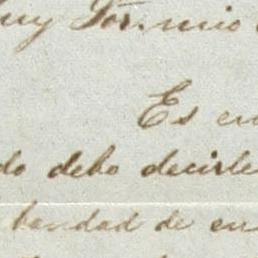 uy Sor. mio
Es en
do debo decirle
bondad de en